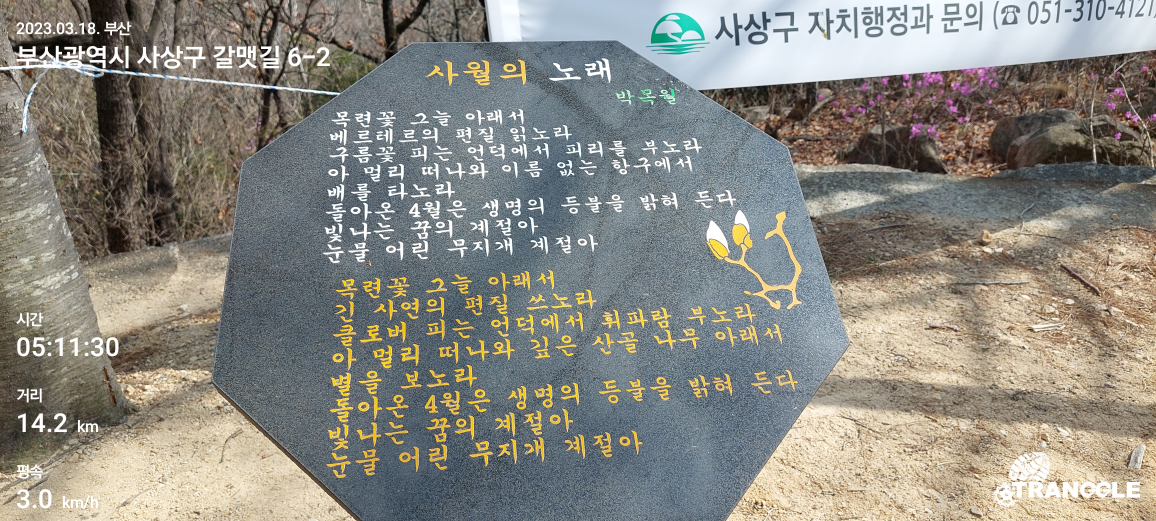 2023.03.18. 부산
부산광역시 사상구 갈맷길 6-2
사상구 자치행정과 문의 (☎ 051-310-4121
사월의 노래
박목월
목련꽃 그늘 아래서
베르테르의 편질 읽노라
구름꽃 피는 언덕에서 피리를 부노라
아 멀리 떠나와 이름 없는 항구에서
배를 타노라
돌아온 4월은 생명의 등불을 밝혀 든다
빛나는 꿈의 계절아
눈물 어린 무지개 계절아
목련꽃 그늘 아래서
긴 사연의 편질 쓰노라
클로버 피는 언덕에서 휘파람 부노라
아 멀리 떠나와 깊은 산골 나무 아래서
별을 보노라
돌아온 4월은 생명의 등불을 밝혀 든다
빛나는 꿈의 계절아
눈물 어린 무지개 계절아
시간
05:11:30
거리
14.2 km
평속
3.0 km/h
TRANGGLE